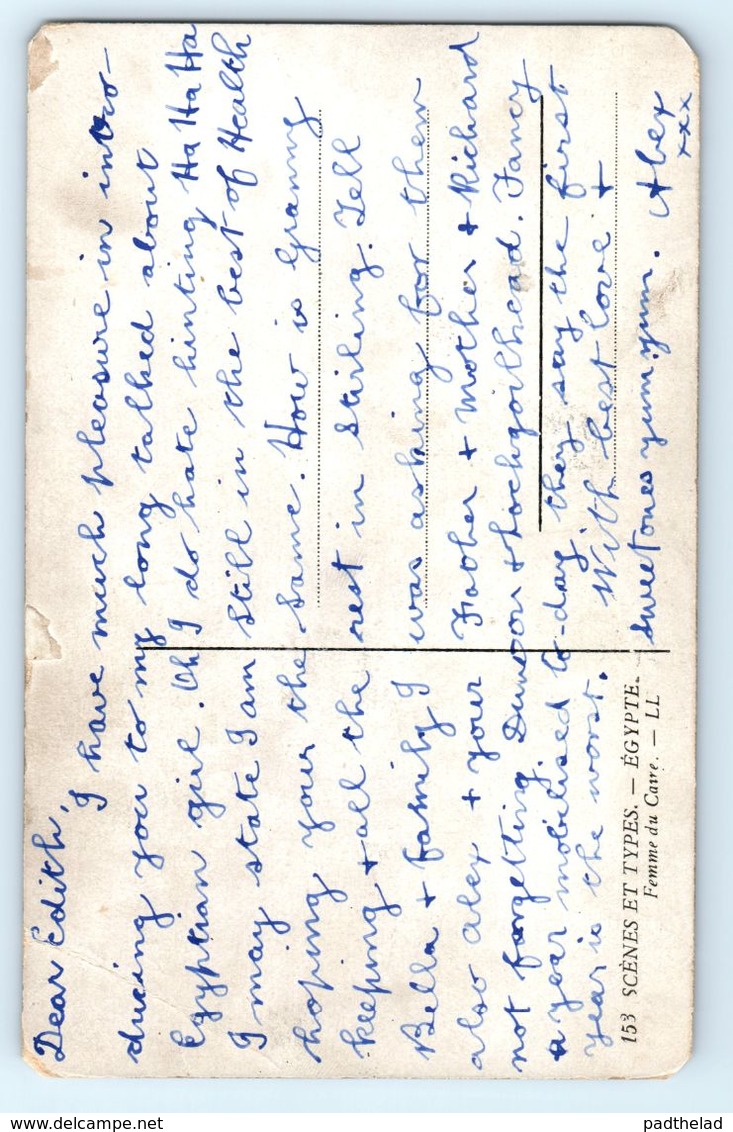 Dear Edith,
I have much pleasure in intro-
ducing you to my long talked about
Egyptian girl. Oh I do hate hinting Ha Ha Ha
I may state I am still in the best of Health
hoping your the same. How is Granny
keeping + all the rest in Stirling. Tell
Bella + family I was asking for them
also Alex + your Father + Mother + Richard
not forgetting Dunoon + Lochgoilhead. Fancy
a year mobilised to-day they say the first
year is the worst. With best love +
sweet ones yum yum. Alex
xxx
153 SCÈNES ET TYPES. — ÉGYPTE.
Femme du Caire. — LL
padthelad
delcampe.net